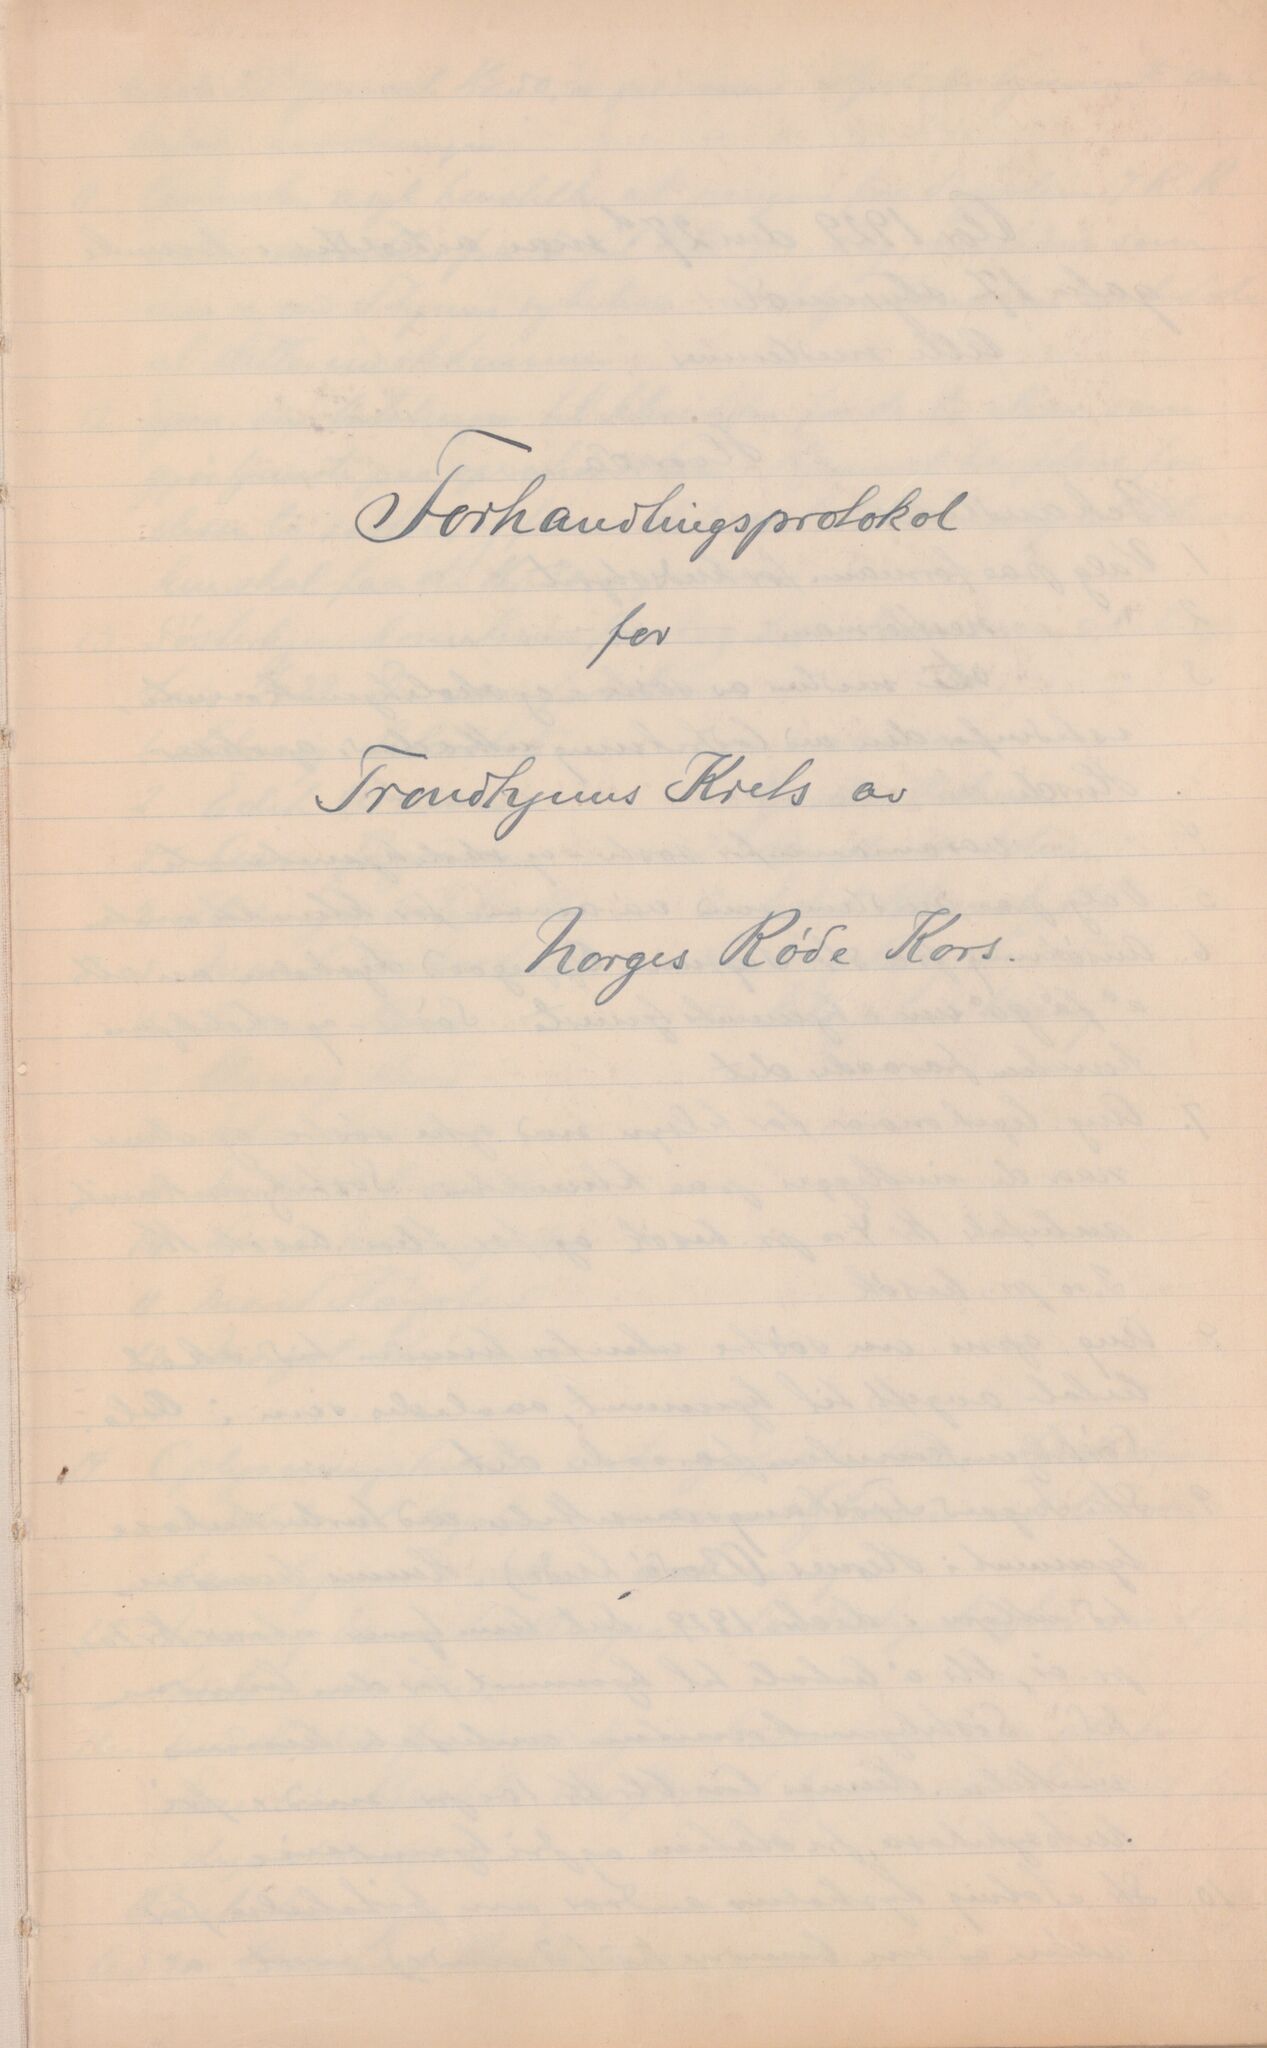 Forhandlingsprotokol
for
Trondhjems Krets av
Norges Røde Kors.